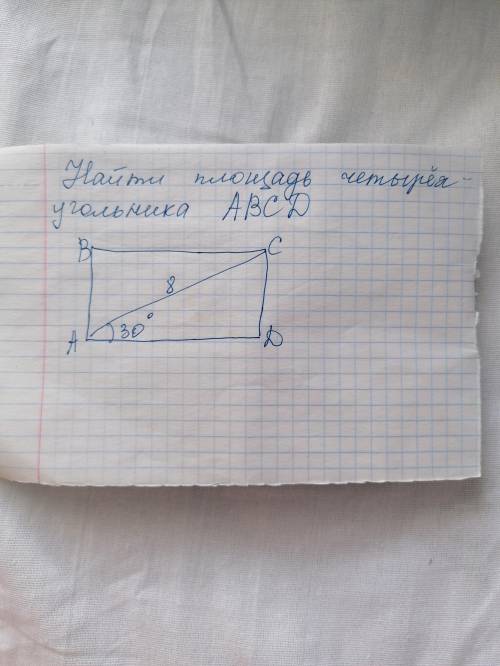 Найти площадь четырёх-
угольника ABCD
B C
8
A 30° D